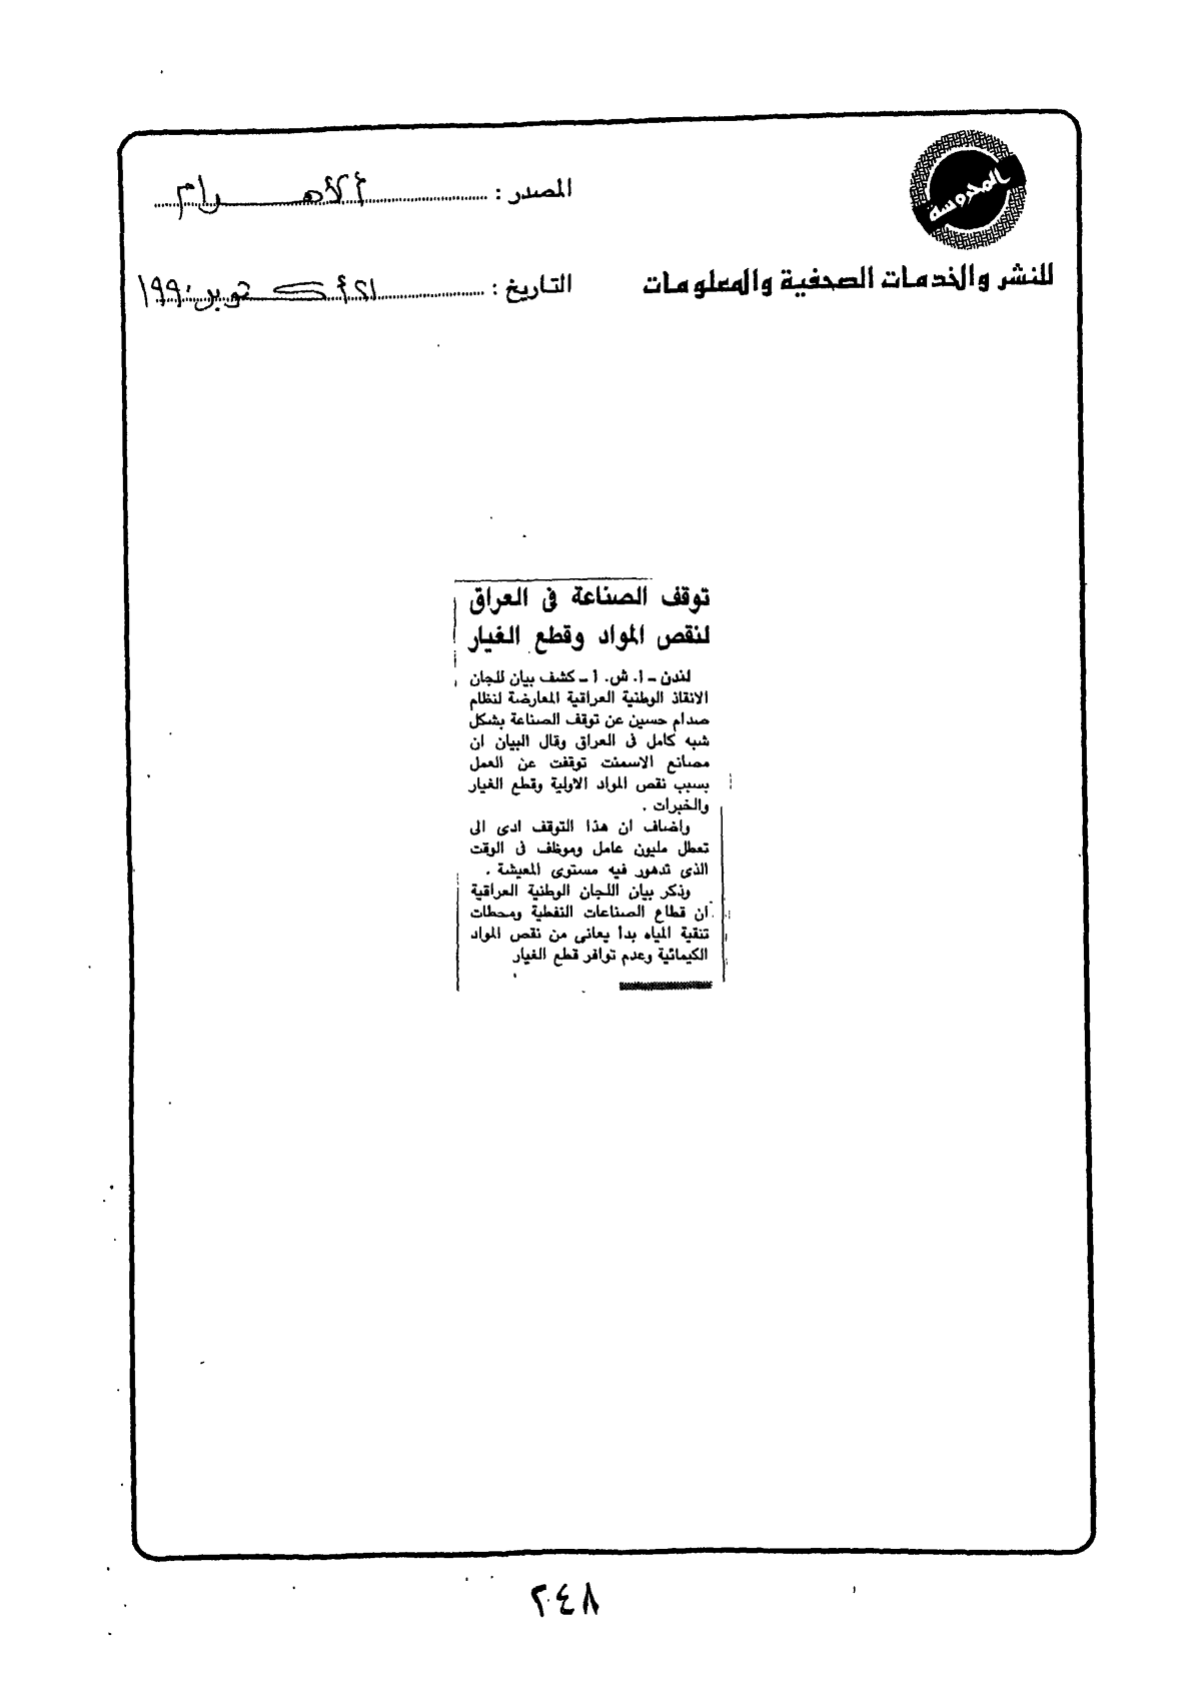 المحروسة
للنشر والخدمات الصحفية والمعلومات
المصدر : الأهرام
التاريخ : ٢١ أكتوبر ١٩٩٠
توقف الصناعة فى العراق
لنقص المواد وقطع الغيار
لندن ـ ا. ش. ا ـ كشف بيان للجان
الانقاذ الوطنية العراقية المعارضة لنظام
صدام حسين عن توقف الصناعة بشكل
شبه كامل فى العراق وقال البيان ان
مصانع الاسمنت توقفت عن العمل
بسبب نقص المواد الاولية وقطع الغيار
والخبرات .
واضاف ان هذا التوقف ادى الى
تعطل مليون عامل وموظف فى الوقت
الذى تدهور فيه مستوى المعيشة .
وذكر بيان اللجان الوطنية العراقية
ان قطاع الصناعات النفطية ومحطات
تنقية المياه بدأ يعانى من نقص المواد
الكيمائية وعدم توافر قطع الغيار
٢٤٨